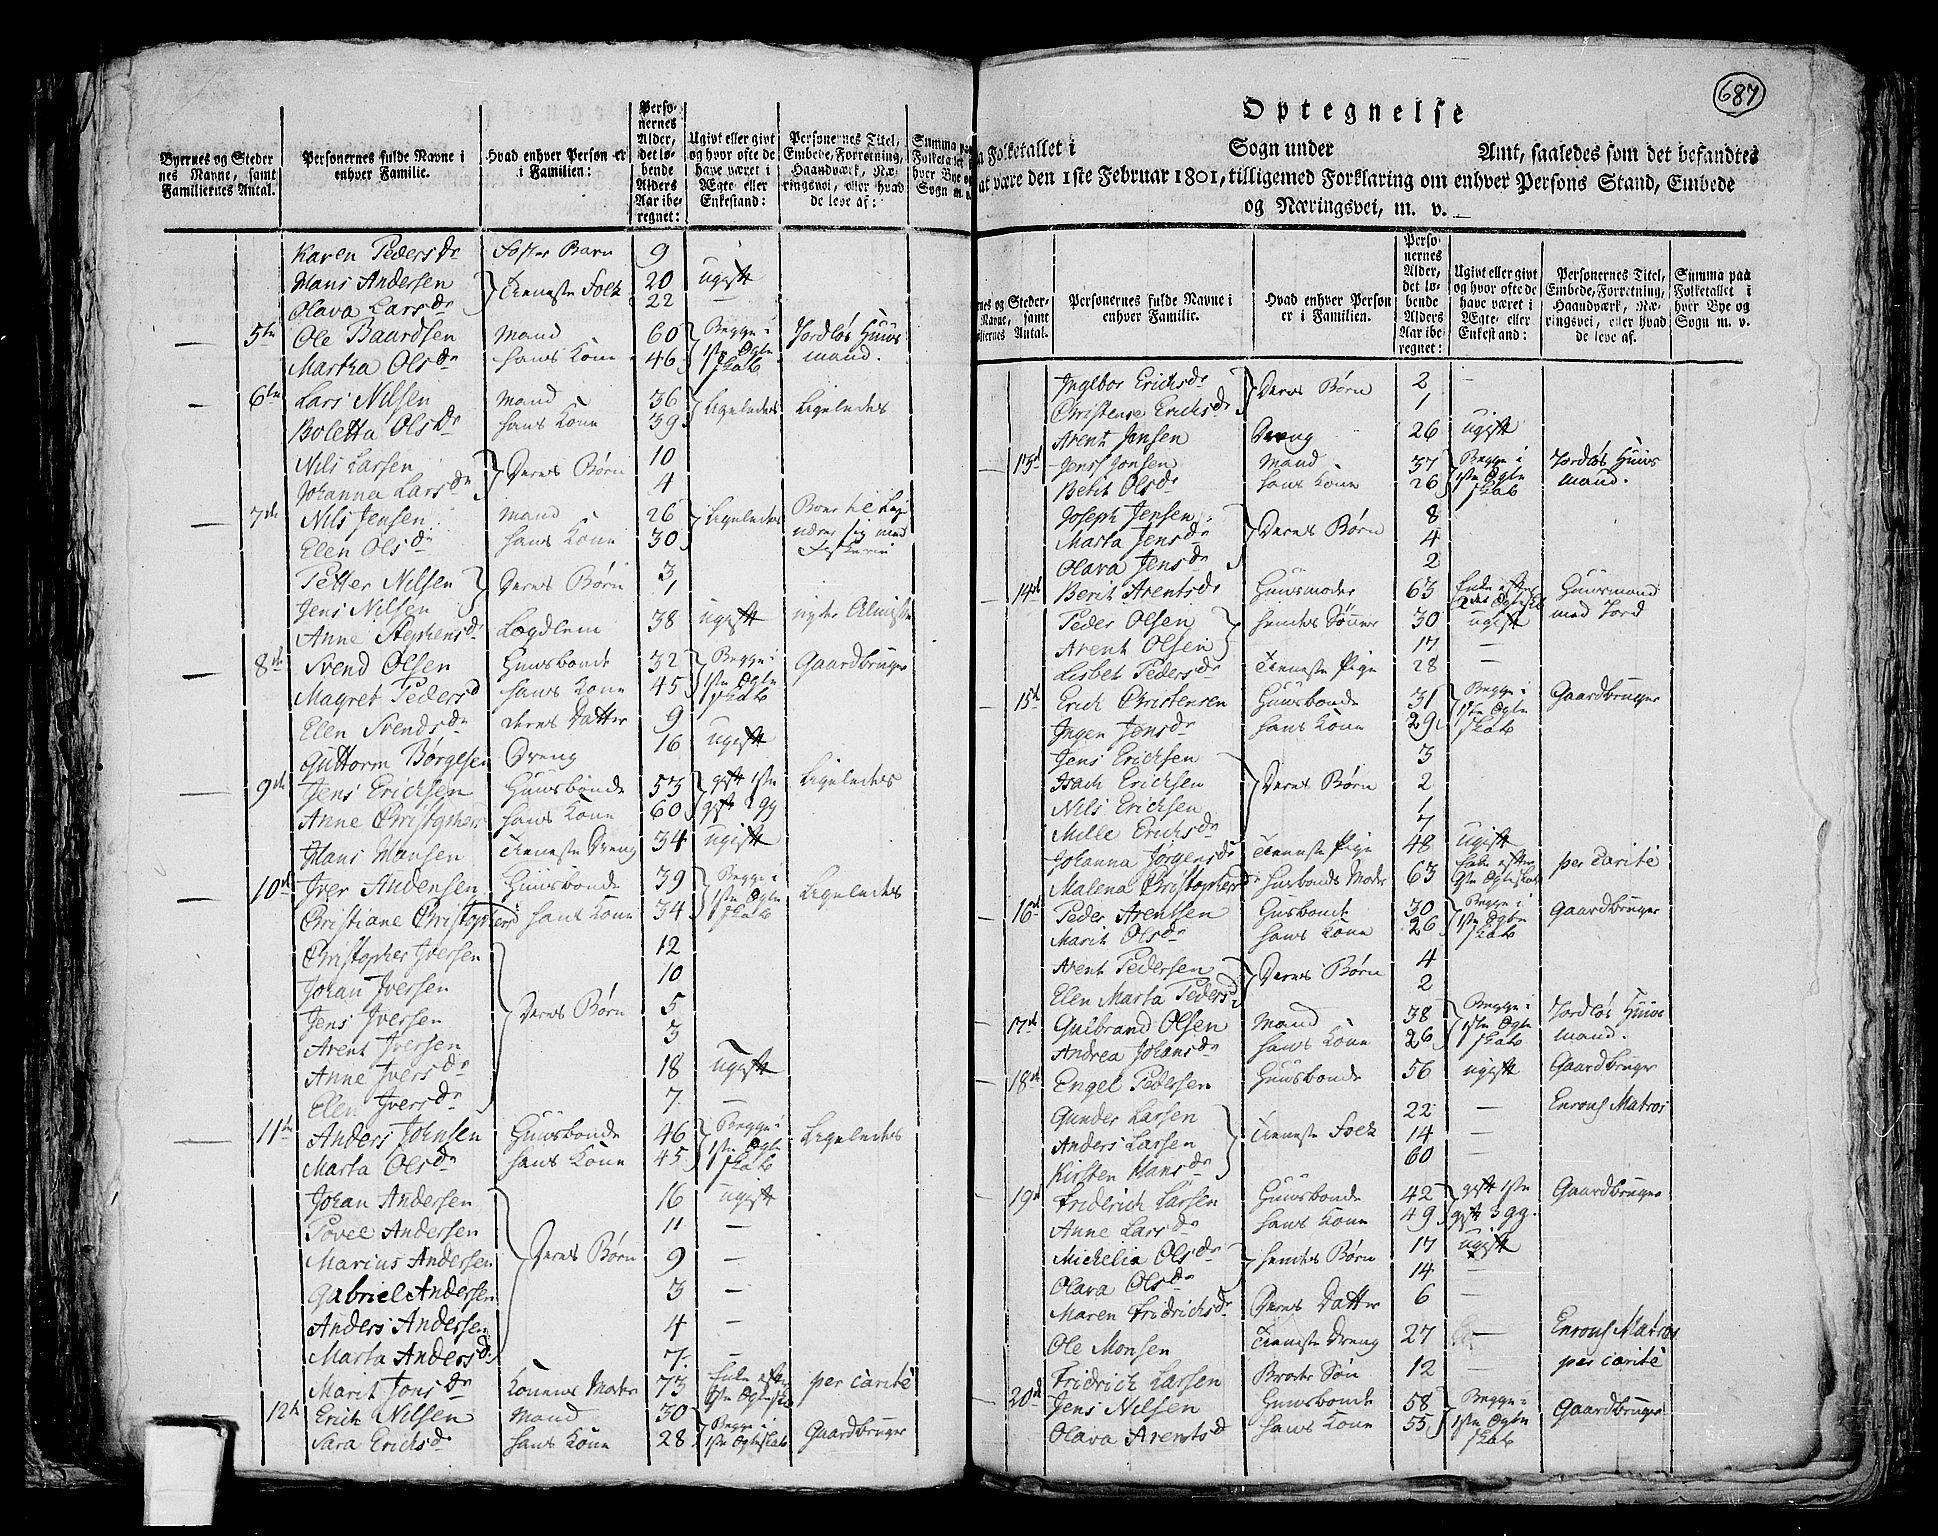 Byernes og Steder
nes Navne, samt
Familiernes Antal.
Personernes fulde Navne i
enhver Familie.
Hvad enhver Person er
i Familien:
Perso-
nernes
Alder,
det lø-
bende
Alders
Aar ibe-
regnet:
Ugivt eller givt
og hvor ofte de
have været i
Ægte- eller
Enkestand:
Personernes Titel,
Embede, Forretning,
Haandværk, Næ-
ringsvei, eller hvad
de leve af:
Summa paa
Folketallet
hver Bye og
Sogn m. v.
Karen Pedersdr Foster Barn 9
Hans Andersen Tieneste Folk 20 ugift
Olava Larsdr 22 —
5te Ole Baardsen Mand 60 Begge i Jordløs Huus
Martha Olsdr hans Kone 46 1ste Ægte skab mand.
6te Lars Nilsen Mand 36 Ligeledes Ligeledes
Boletta Olsdr hans Kone 39
Nils Larsen Deres Børn 10
Johanna Larsdr 4
7de Nils Jensen Mand 26 Ligeledes Boer til Leje
Elen Olsdr hans Kone 30 nærer sig med Fiskerie
Petter Nilsen Deres Børn 3
Jens Nilsen 1
Anne Stephensdr Lægdlem 38 ugift nyder Almisse
8de Svend Olsen Huusbonde 32 Begge i Gaardbruger
Magret Pedersd hans Kone 45 1ste Ægte skab
Elen Svendsdr deres Datter 9
Guttorm Børgesen Dreng 16 ugift
9de Jens Erichsen Huusbonde 53 gift 1ste Ligeledes
Anne Christophers hans Kone 60 gift 2 gg
Hans Hansen Tieneste Dreng 34 ugift
10de Iver Andersen Huusbonde 39 Begge i Ligeledes
Christiane Christophersd hans Kone 34 1ste Ægte skab
Christopher Iversen 12
Johan Iversen 10
Jens Iversen Deres Børn 5
Arent Iversen 3
Anne Iversdr 18 ugift
Elen Iversdr 7 —
11te Anders Johnsen Huusbonde 46 Begge i Ligeledes
Marta Olsdr hans Kone 45 1ste Ægte skab
Johan Andersen 16 ugift
Povel Andersen 11 —
Marius Andersen Deres Børn 9 —
Gabriel Andersen 3 —
Anders Andersen 4 —
Marta Andersd 7 —
Marit Jonsdr Konens Moder 73 Enke efter per carité
1ste Ægteskab
12te Erich Nilsen Mand 30 Begge i
Sara Erichsdr hans Kone 28 1ste Ægteskab Gaardbruger
687
Optegnelse
Folketallet i Sogn under Amt, saaledes som det befandtes
at være den 1ste Februar 1801, tilligemed Forklaring om enhver Persons Stand, Embede
og Næringsvei, m. v.
nes og Steder-
Navne, samt
liernes Antal.
Personernes fulde Navne i
enhver Familie.
Hvad enhver Person
er i Familien.
Perso-
nernes
Alder,
det lø-
bende
Alders
Aar ibe-
regnet:
Ugivt eller givt
og hvor ofte de
have været i
Ægte- eller
Enkestand:
Personernes Titel,
Embede, Forretning,
Haandværk, Næ-
ringsvei, eller hvad
de leve af.
Summa paa
Folketallet i
hver Bye og
Sogn m. v.
Ingebor Erichsdr Deres Børn 2 —
Christense Erichsdr 1
Arent Jensen Dreng 26 ugift
13d Jens Jonsen Mand 37 Begge i Jordløs Huus
Berit Olsdr hans Kone 26 1ste Ægte skab mand.
Joseph Jensen 8
Marta Jensdr Deres Børn 4
Olava Jensdr 2
14d Berit Arentsdr Huusmoder 63 Enke efter Huusmand
Peder Olsen hendes Sønner 30 ugift med Jord
Arent Olsen 17 —
Lisbet Pedersdr Tieneste Pige 28 —
15d Erich Christensen Huusbonde 31 Begge i Gaardbruger
Ingen Jensdr hans Kone 29 1ste Ægte skab
Jens Erichsen 3
Isach Erichsen Deres Børn 2
Nils Erichsen 1
Mille Erichsdr 7
Johanna Jørgensdr Tieneste Pige 48 ugift
Malena Christophersdr Husbonds Moder 63 Enke efter per carité
1ste Ægteskab
16d Peder Arentsen Husbonde 30 Begge i Gaardbruger
Marit Olsdr hans Kone 26 1ste Ægte skab
Arent Pedersen Deres Børn 4
Elen Marta Pedersd 2
17d Gulbrand Olsen Mand 38 Begge i Jordløs Huus
Andrea Johansdr hans Kone 26 1ste Ægte skab mand.
18d Engel Pedersen Huusbonde 56 ugift Gaardbruger
Gunder Larsen 22 — Enroul Matros
Anders Larsen Tieneste Folk 14 —
Kirsten Hansdr 60 —
19d Fridrich Larsen Huusbonde 42 gift 1ste Gaardbruger
Anne Larsdr hans Kone 49 gift 3 gg.
Michelia Olsdr hendes Børn 17 ugift
Olava Olsdr 14 —
Maren Fridrichsdr Deres Datter 6 —
Ole Monsen Tieneste Dreng 27 — Enroul Matros
Fridrich Larsen Broder Søn 12 — per carité
20d Jens Nilsen Huusbonde 58 Begge i
Olava Arentsd hans Kone 55 1ste Ægte skab Gaardbruger